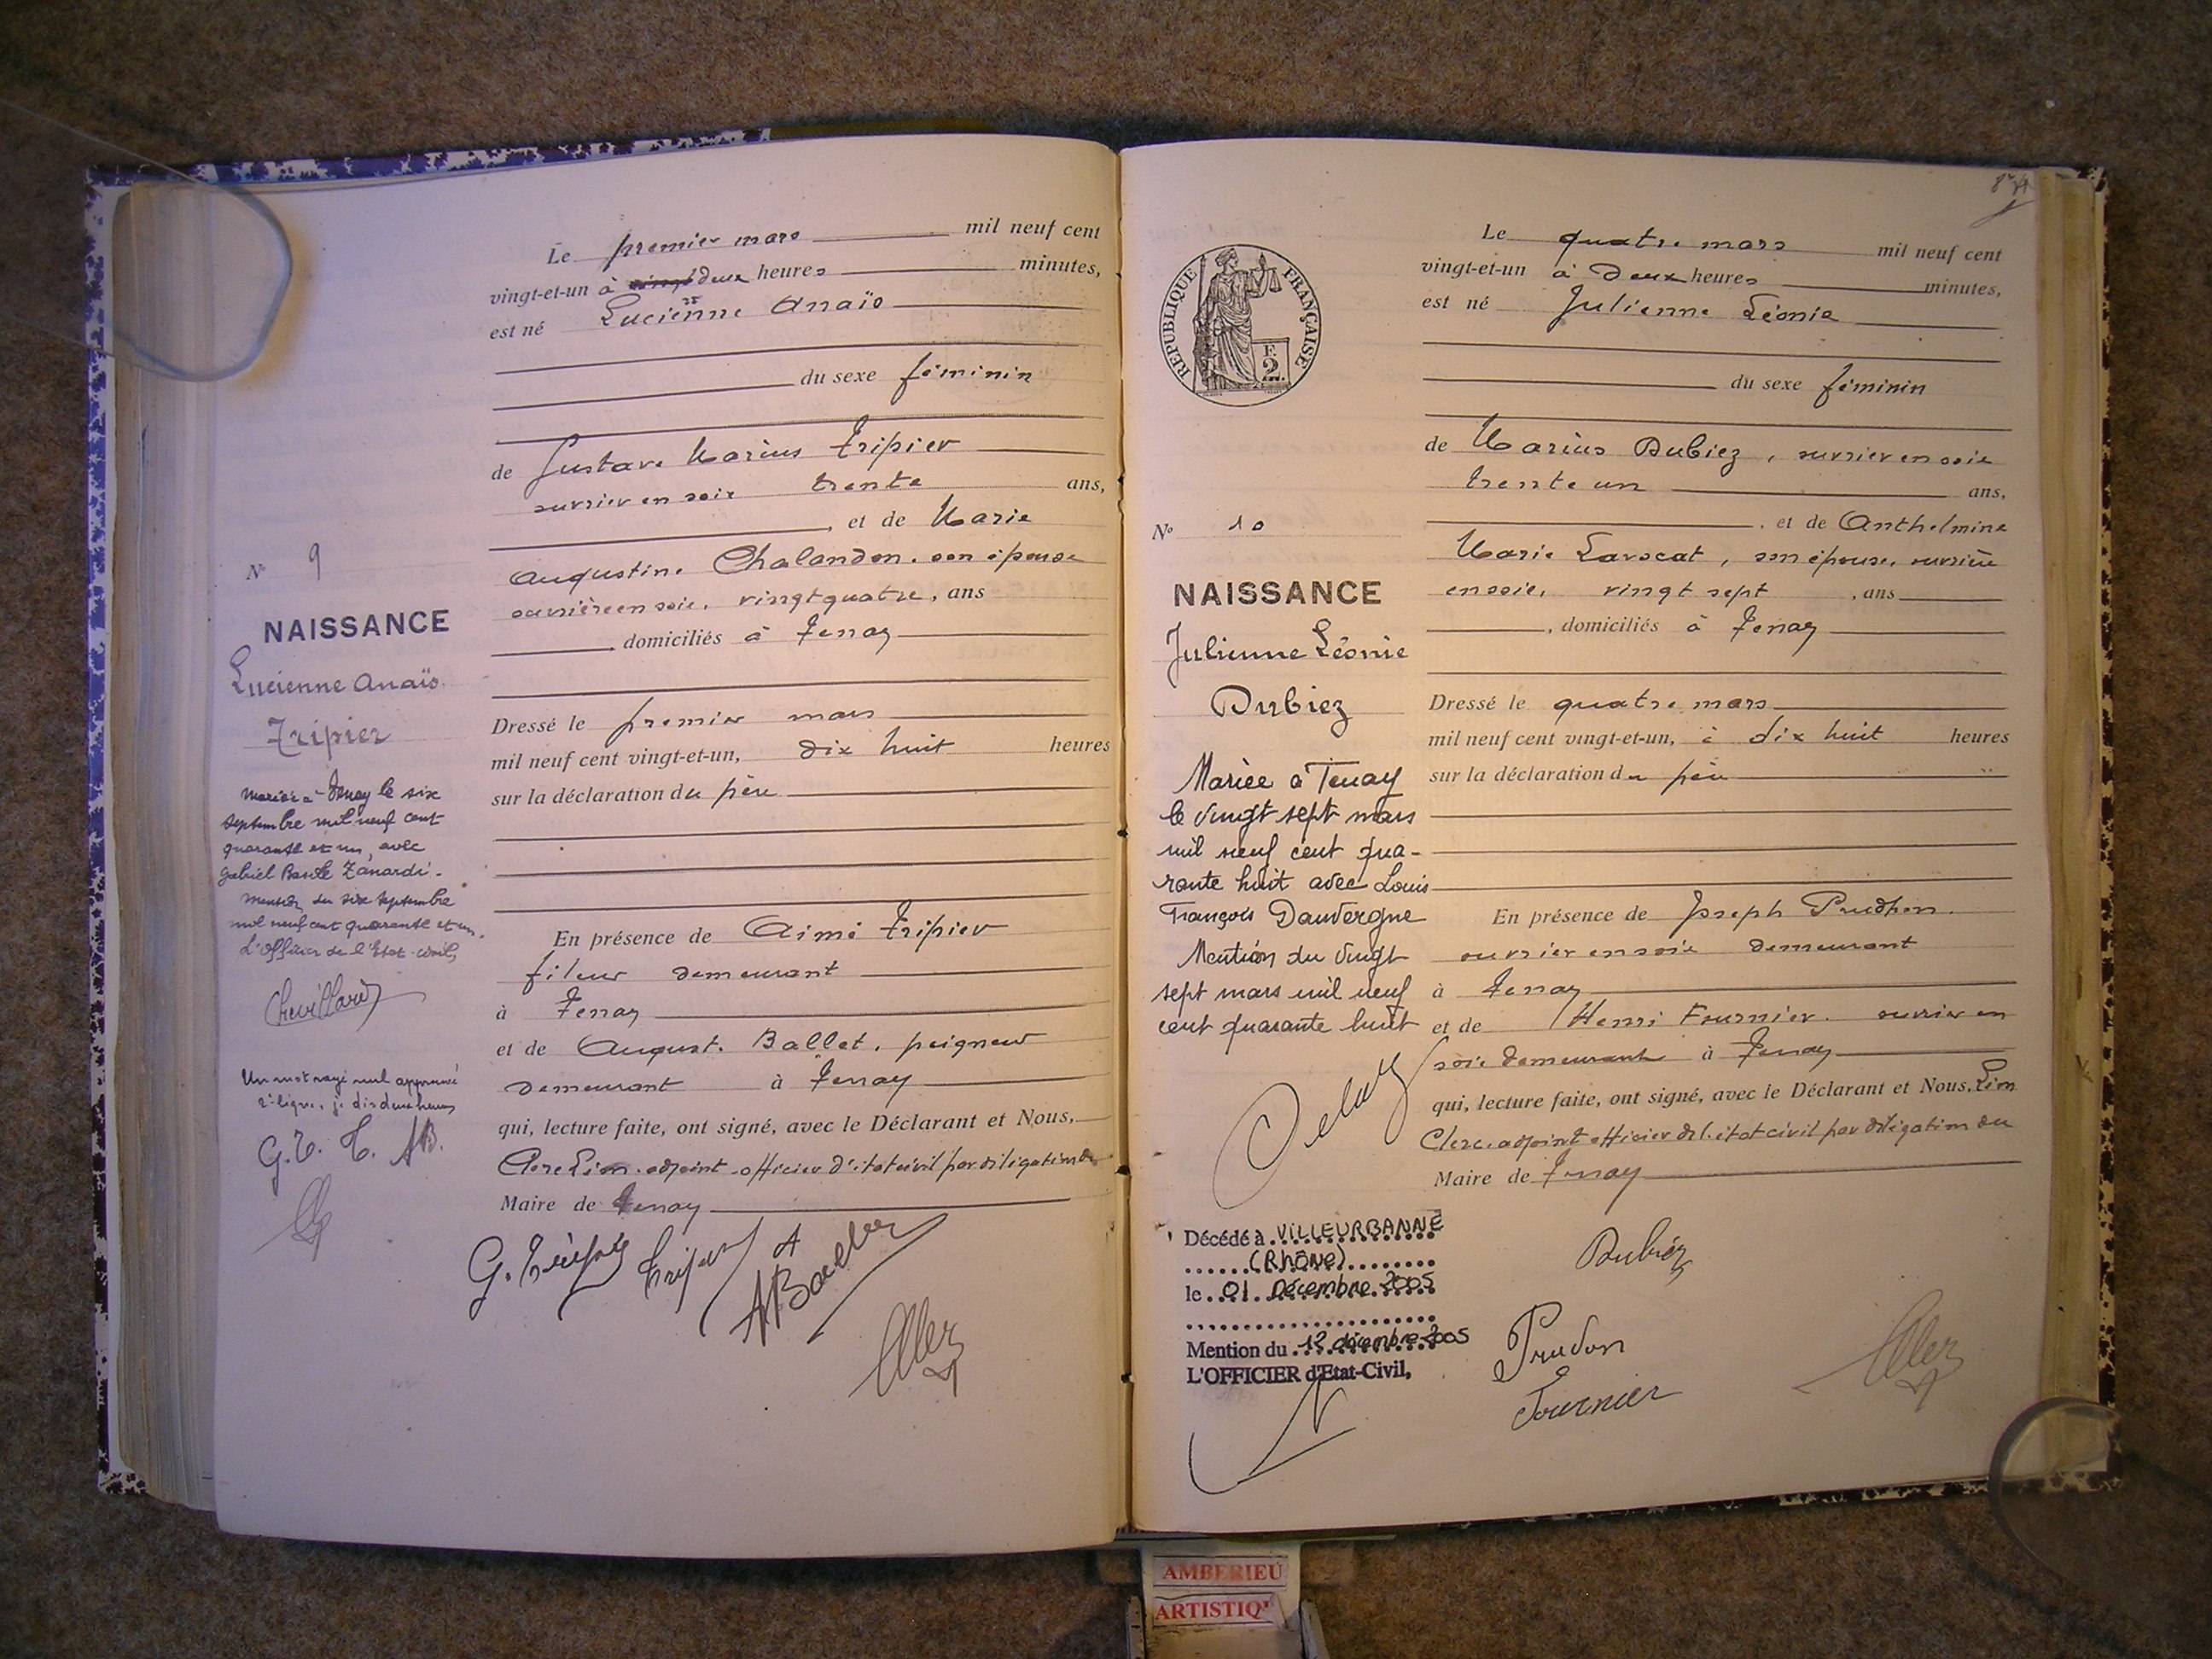 N° 9
NAISSANCE
Lucienne Anaïs
Tripier
Mariée à Tenay le six
septembre mil neuf cent
quarante et un, avec
Gabriel Zanardi.
Mention du six septembre
mil neuf cent quarante et un.
L'Officier de l'Etat-civil,
Chevillard
Un mot rayé nul approuvé
2e ligne, je dis deux heures
G.T. T. AB.
Le premier mars mil neuf cent
vingt-et-un à vingt deux heures minutes,
est né Lucienne Anaïs
du sexe féminin
de Gustave Marius Tripier
ouvrier en soie trente ans,
, et de Marie
Augustine Chalandon, son épouse
ouvrière en soie, vingt quatre, ans
, domiciliés à Tenay
Dressé le premier mars
mil neuf cent vingt-et-un, dix huit heures
sur la déclaration du père
En présence de Aimé Tripier
fileur demeurant
à Tenay
et de August. Ballet, peigneur
demeurant à Tenay
qui, lecture faite, ont signé, avec le Déclarant et Nous,
Clerc Léon adjoint officier d'état civil par délégation du
Maire de Tenay
G. Tripier Tripier
REPUBLIQUE FRANÇAISE
N° 10
NAISSANCE
Julienne Léonie
Dubiez
Mariée à Tenay
le vingt sept mars
mil neuf cent qua-
rante huit avec Louis
François Dauvergne
Mention du vingt
sept mars mil neuf
cent quarante huit
Décédé à VILLEURBANNE
(Rhône)
le 01 Décembre 2005
Mention du 12 décembre 2005
L'OFFICIER d'Etat-Civil,
Le quatre mars mil neuf cent
vingt-et-un à deux heures minutes,
est né Julienne Léonie
du sexe féminin
de Marius Dubiez, ouvrier en soie
trente un ans,
, et de Anthelmine
Marie Lavocat, son épouse, ouvrière
en soie, vingt sept , ans
, domiciliés à Tenay
Dressé le quatre mars
mil neuf cent vingt-et-un, à dix huit heures
sur la déclaration du père
En présence de Joseph Prudhon
ouvrier en soie demeurant
à Tenay
et de Henri Fournier, ouvrier en
soie demeurant à Tenay
qui, lecture faite, ont signé, avec le Déclarant et Nous, Léon
Clerc adjoint officier de l'état civil par délégation du
Maire de Tenay
Dubiez
Prudon
Fournier
AMBERIEU
ARTISTIQ